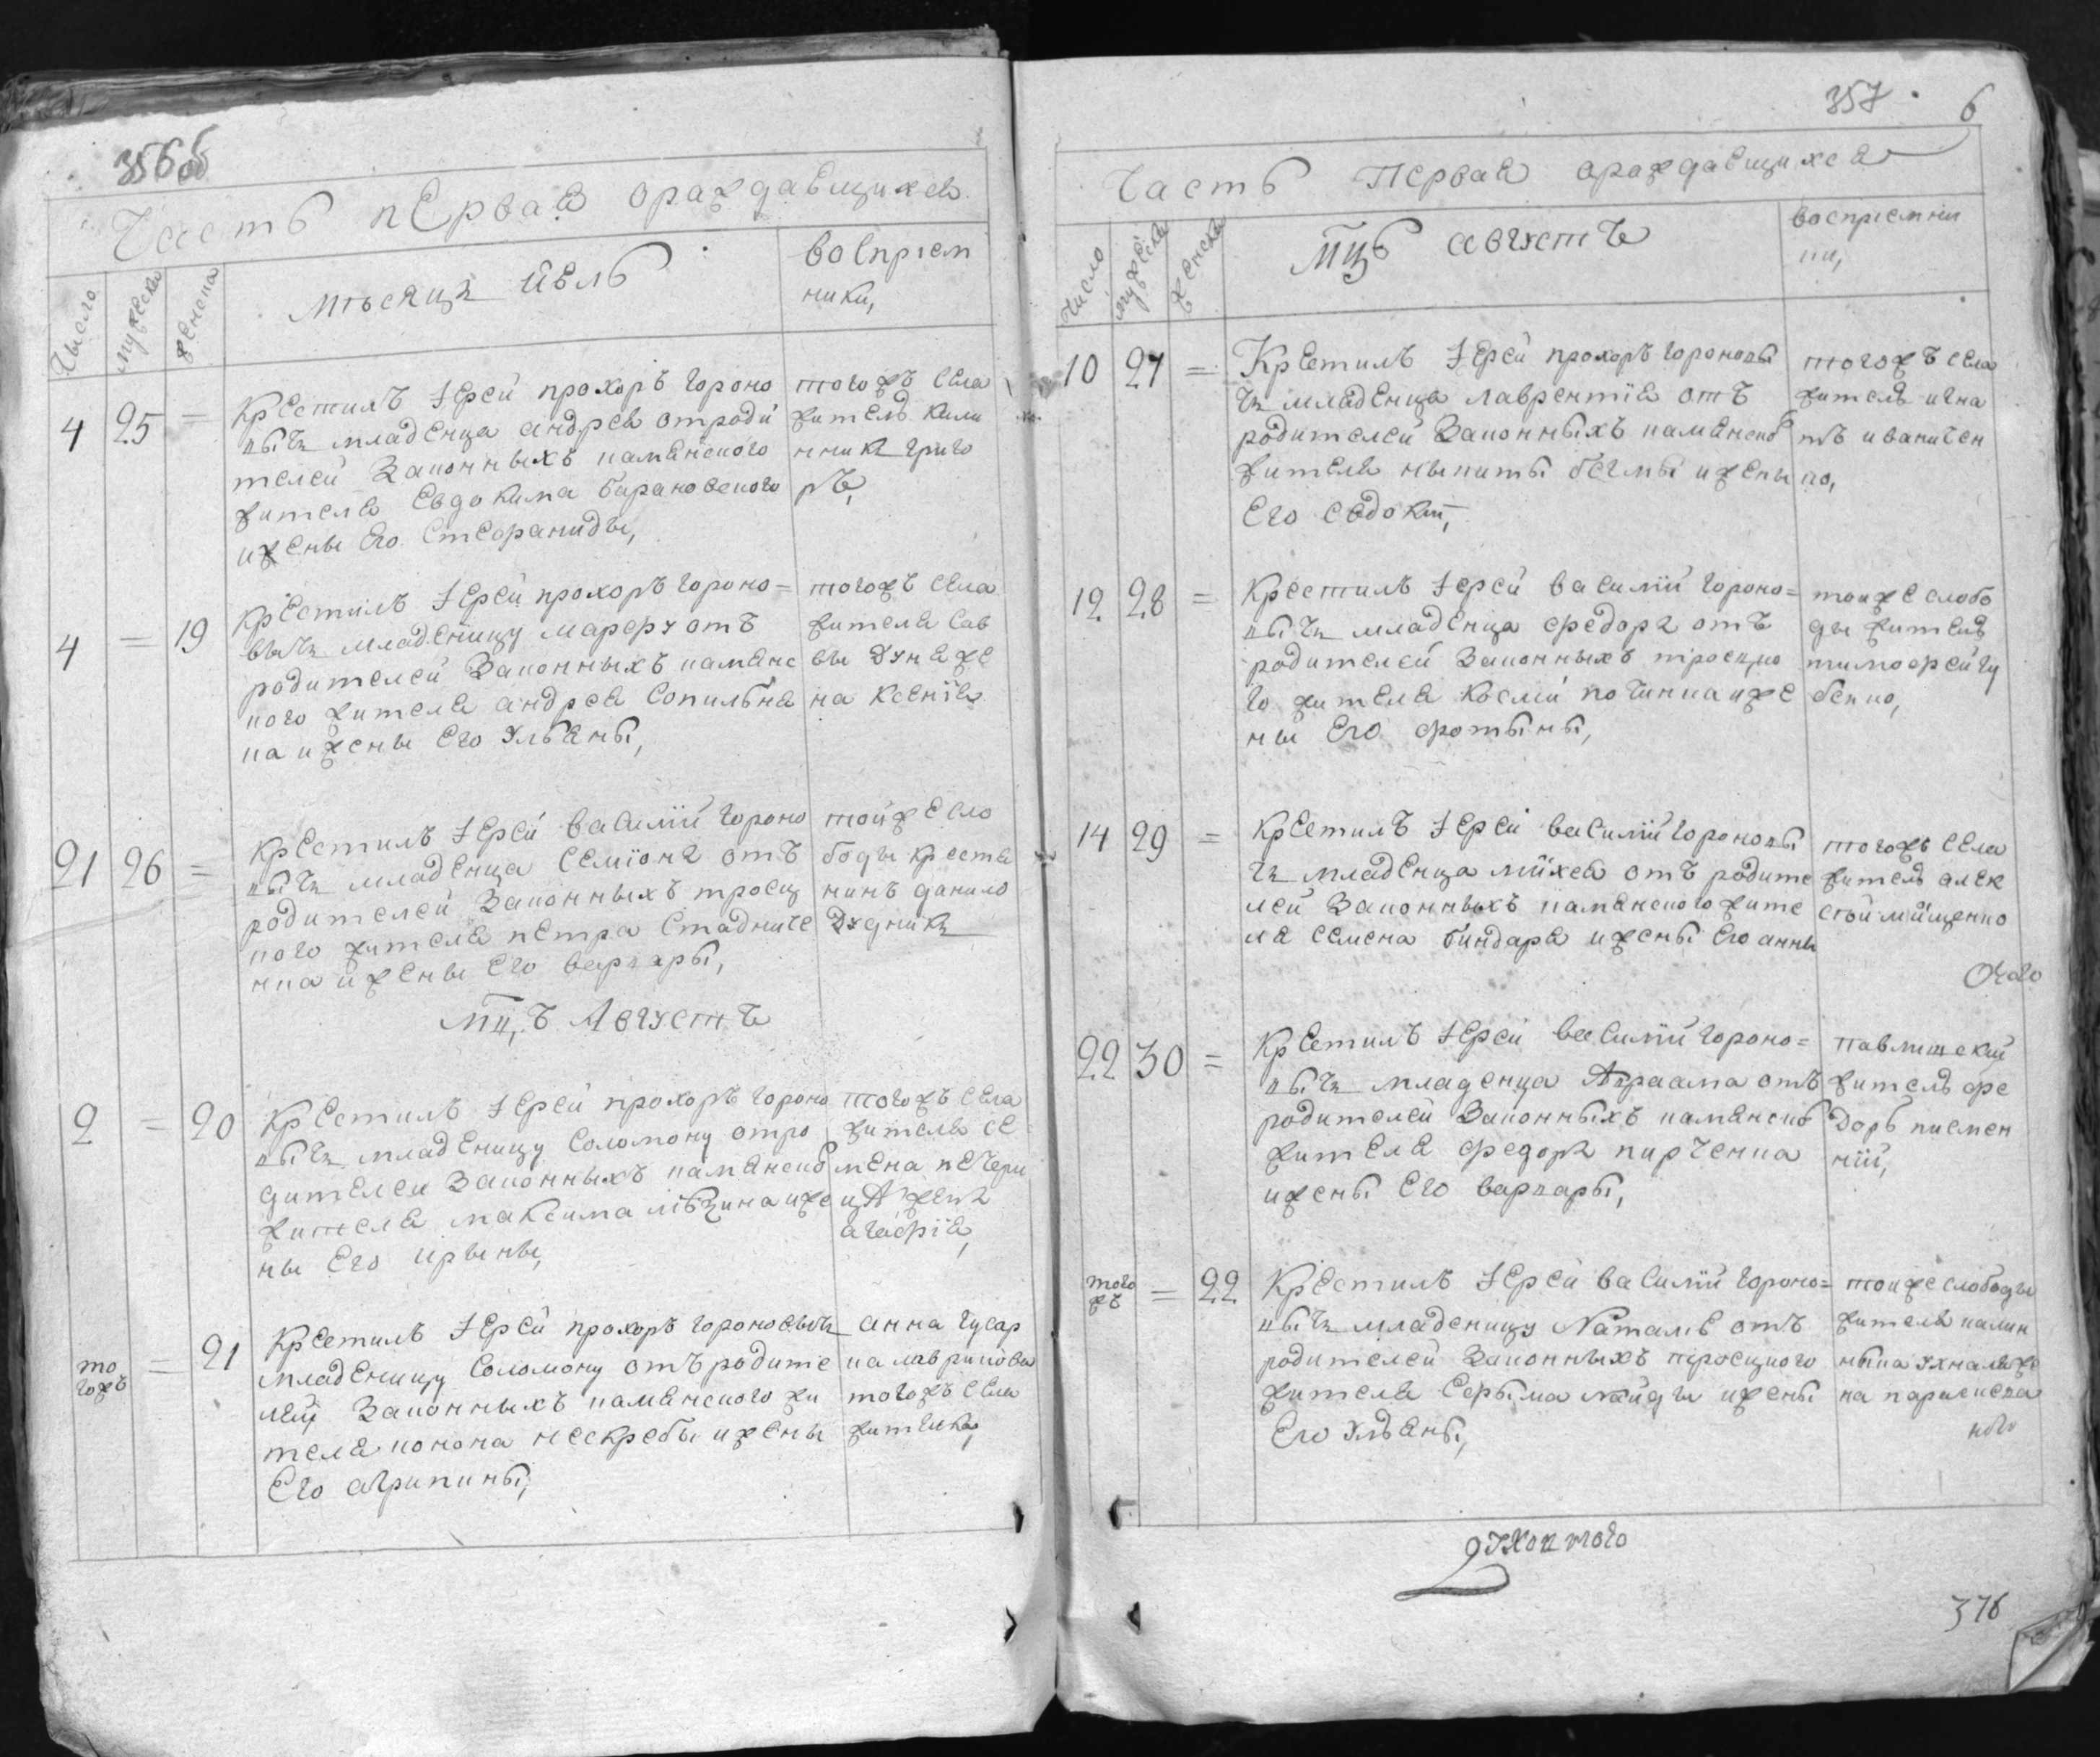 356об
Часть первая ораждаещихся
Число
мужеска
женска
мѣсяцъ июль
восприем
ники,
4 25 =
Крестилъ Іерей прохоръ Гороно
вычъ младенца андрея отроди
телей Законныхъ каменского
жителя Евдокима барановского
ижены Его Стефаниды,
тогожъ села
житель кали
нникъ григо
4 = 19
Крестилъ Іерей прохоръ Гороно=
вычъ младеницу марфу отъ
родителей Законныхъ каменс
кого жителя андрея Сопильня
ка ижены Его Ульяны,
тогожъ села
жителя Сав
вы же
на ксения
21 26 =
Крестилъ Іерей василий Гороно
вычъ младенца Семиона отъ
родителей Законныхъ троец
кого жителя петра Стадниче
нка ижены Его варвары,
тойже сло
боды крестя
нинъ данило
Дудникъ
мц,ъ Августъ
2 = 20
Крестилъ Іерей прохоръ Гороно
вычъ младеницу Соломону отро
дителей Законныхъ каменског
жителя максима иже
ны Его ирыны,
тогожъ села
жителя се
мена печери
ця жена
агафия,
то
гожъ = 21
Крестилъ Іерей прохоръ Гороновычъ
младеницу Соломону отъ родите
лей Законныхъ каменского жи
теля конона нескребы ижены
Его агрипины,
анна гусар
ка лавринова
тогожъ села
жителка,
357 6
Часть Первая ораждаещихся
Число
мужеска
женска
мцъ августъ
восприемни
ки,
10 27 =
Крестилъ Іерей прохоръ Горонов
чъ младенца лаврентия отъ
родителей Законныхъ каменског
жителя ныкиты ижены
Его евдокии,
тогожъ села
житель игна
тъ иваничен
ко,
12 28 =
Крестилъ Іерей василий Гороно=
вычъ младенца федора отъ
родителей Законныхъ троецко
го жителя починка иже
ны Его фотыны,
тоиже слобо
ды житель
тимофей гу
бенко,
14 29 =
Крестилъ Іерей василий Горонов
чъ младенца михея отъ родите
лей Законныхъ каменского жите
ля семена биндаря ижены Его анны
тогожъ села
житель алек
сей мищенко
22 30 =
Крестилъ Іерей василий Гороно=
вычъ младенца Авраама отъ
родителей Законныхъ каменског
жителя федора кирченка
ижены Его варвары,
павлишский
житель фе
доръ писмен
ний,
того
жъ = 22
Крестилъ Іерей василий Гороно=
вычъ младеницу Наталю отъ
родителей Законныхъ троецкого
жителя ижены
Его Ульяны,
тоиже слободы
жителя калин
ныка же
на
духовного
376